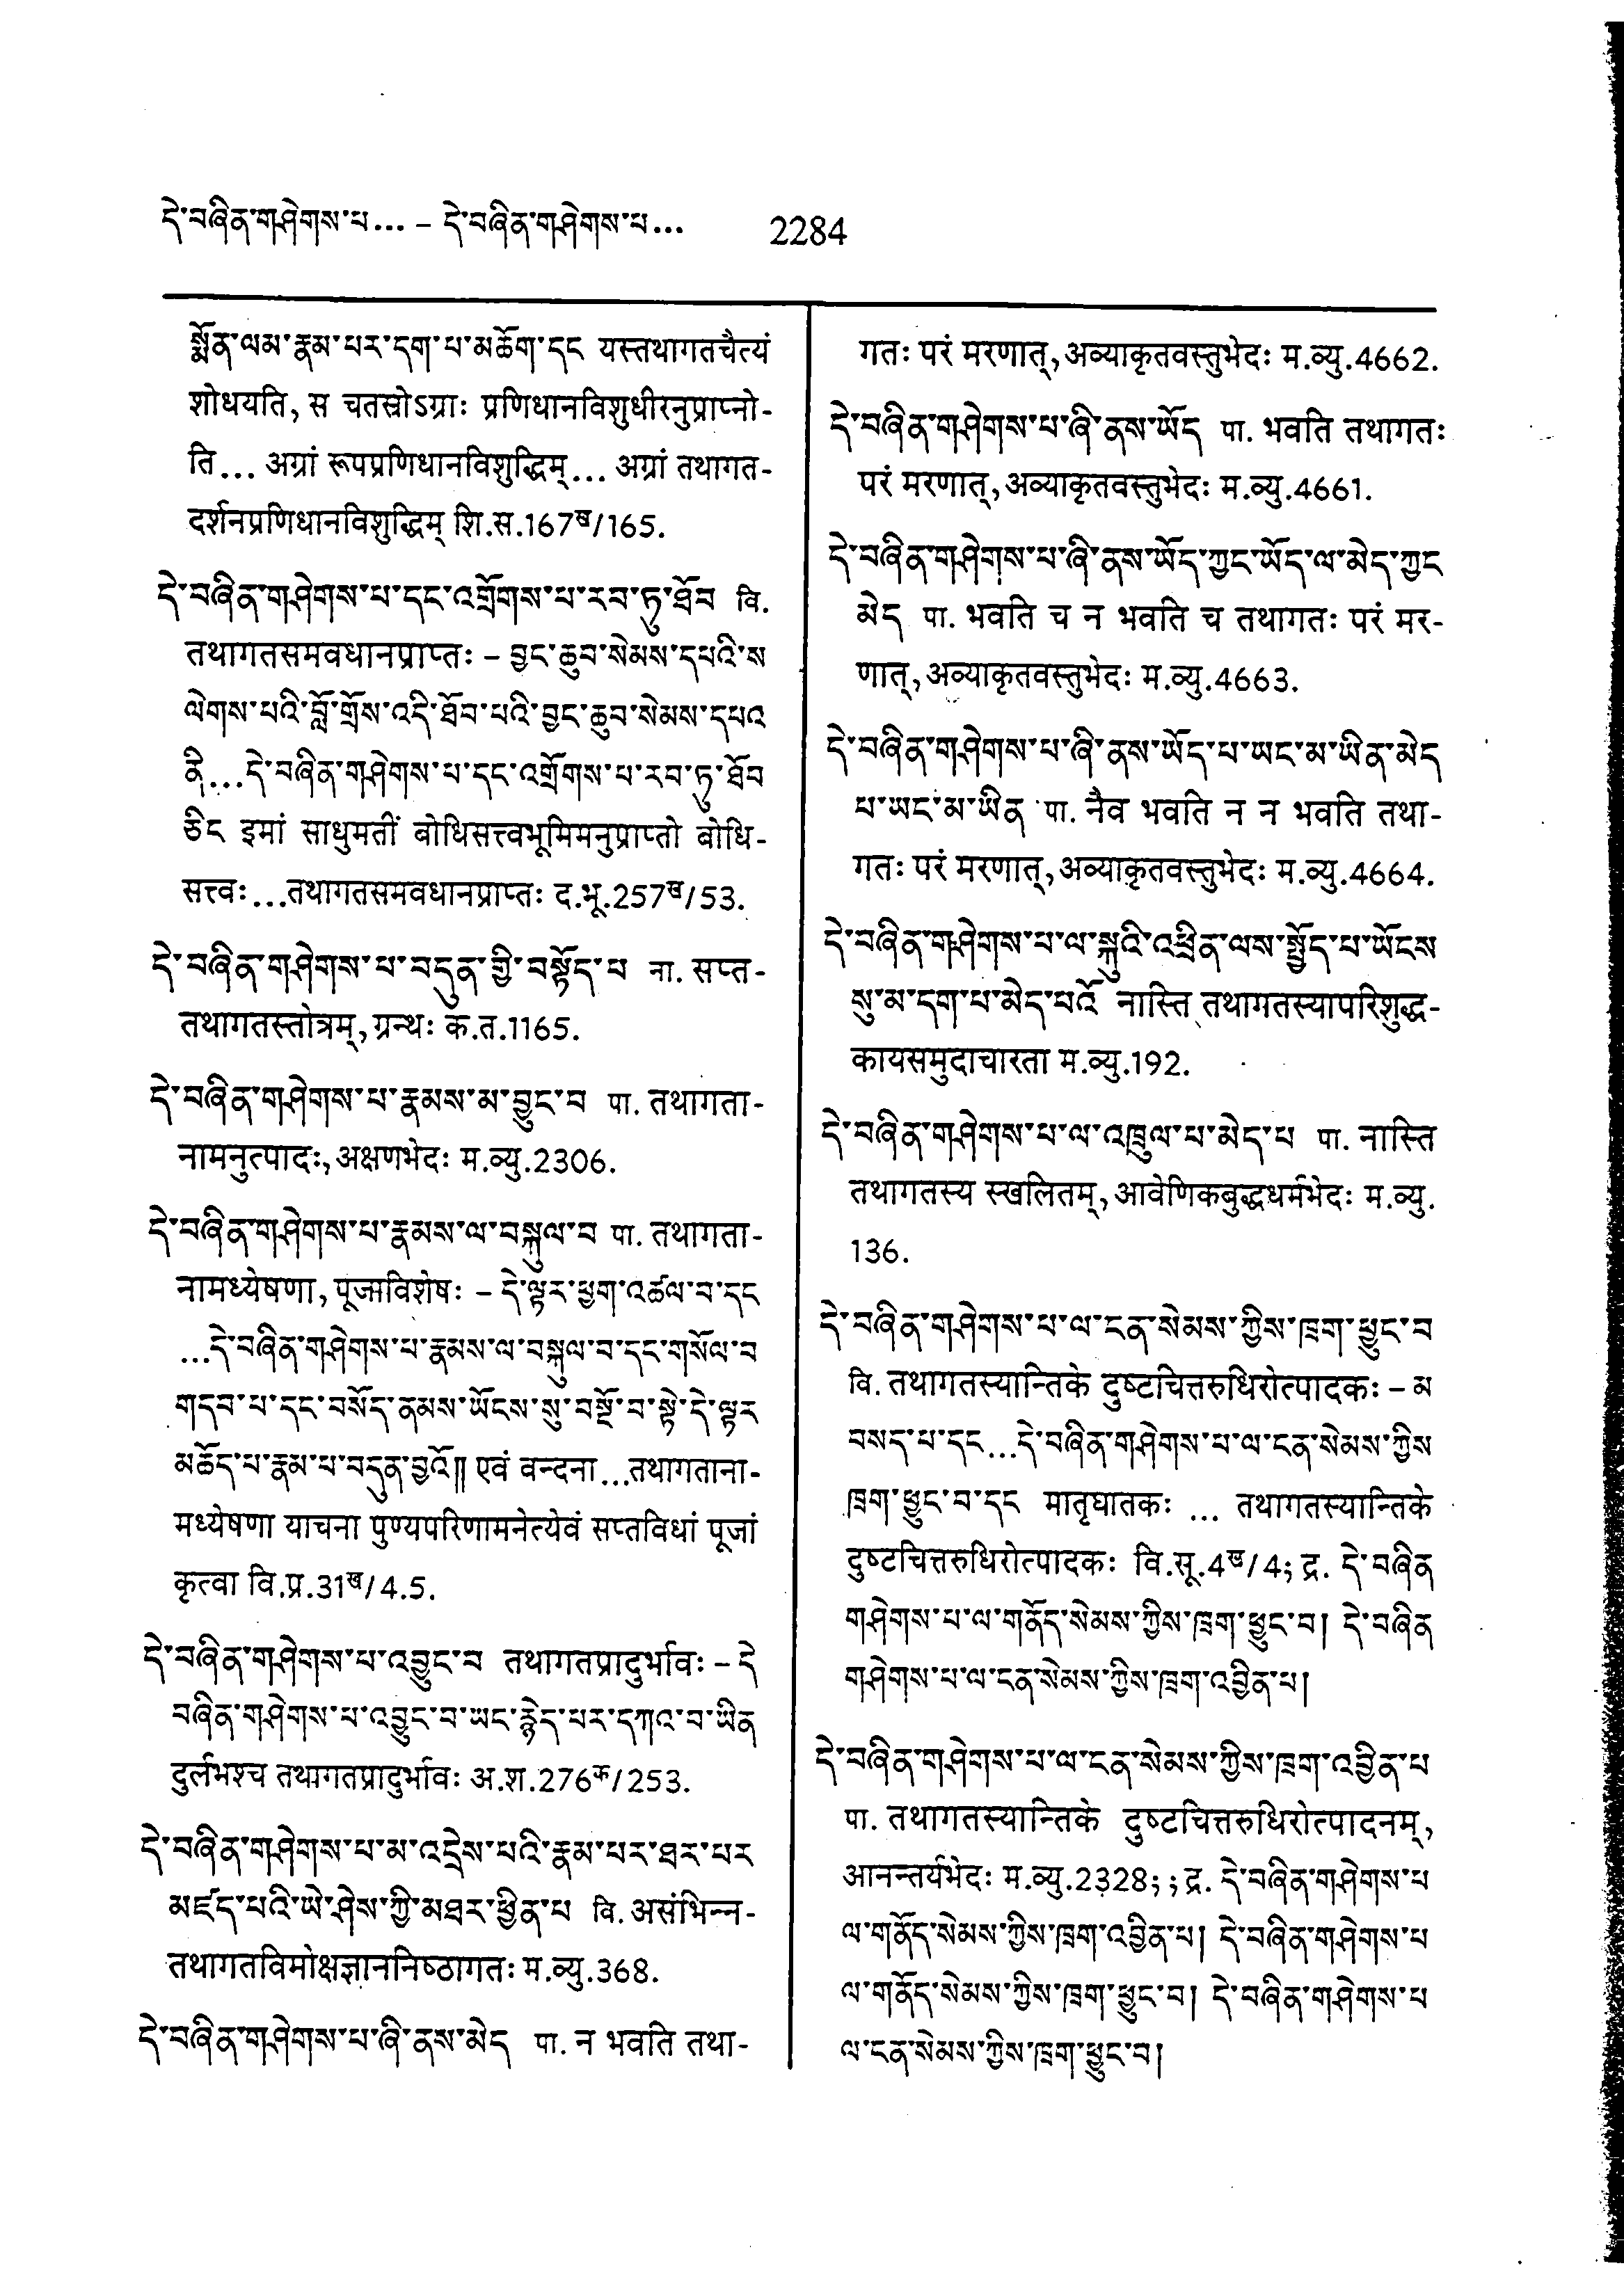 དེ་བཞིན་གཤེགས་པ... – དེ་བཞིན་གཤེགས་པ... 2284
སྨོན་ལམ་རྣམ་པར་དག་པ་མཆོག་དང यस्तथागतचैत्यं
शोधयति, स चतस्रोऽग्राः प्रणिधानविशुधीरनुप्राप्नो-
ति... अग्रां रूपप्रणिधानविशुद्धिम्... अग्रां तथागत-
दर्शनप्रणिधानविशुद्धिम् शि.स.167ख/165.
དེ་བཞིན་གཤེགས་པ་དང་འགྲོགས་པ་རབ་ཏུ་ཐོབ वि.
तथागतसमवधानप्राप्तः – བྱང་ཆུབ་སེམས་དཔའི་ས
ལེགས་པའི་བློ་གྲོས་འདི་ཐོབ་པའི་བྱང་ཆུབ་སེམས་དཔའ
ནི...དེ་བཞིན་གཤེགས་པ་དང་འགྲོགས་པ་རབ་ཏུ་ཐོབ
ཅིང इमां साधुमतीं बोधिसत्त्वभूमिमनुप्राप्तो बोधि-
सत्त्वः...तथागतसमवधानप्राप्तः द.भू.257ख/53.
དེ་བཞིན་གཤེགས་པ་བདུན་གྱི་བསྟོད་པ ना. सप्त-
तथागतस्तोत्रम्, ग्रन्थः क.त.1165.
དེ་བཞིན་གཤེགས་པ་རྣམས་མ་བྱུང་བ पा. तथागता-
नामनुत्पादः, अक्षणभेदः म.व्यु.2306.
དེ་བཞིན་གཤེགས་པ་རྣམས་ལ་བསྐུལ་བ पा. तथागता-
नामध्येषणा, पूजाविशेषः – དེ་ལྟར་ཕྱག་འཚལ་བ་དང
...དེ་བཞིན་གཤེགས་པ་རྣམས་ལ་བསྐུལ་བ་དང་གསོལ་བ
གདབ་པ་དང་བསོད་ནམས་ཡོངས་སུ་བསྔོ་བ་སྟེ་དེ་ལྟར
མཆོད་པ་རྣམ་པ་བདུན་བྱའོ།། एवं वन्दना...तथागताना-
मध्येषणा याचना पुण्यपरिणामनेत्येवं सप्तविधां पूजां
कृत्वा वि.प्र.31ख/4.5.
དེ་བཞིན་གཤེགས་པ་འབྱུང་བ तथागतप्रादुर्भावः – དེ
བཞིན་གཤེགས་པ་འབྱུང་བ་ཡང་རྙེད་པར་དཀའ་བ་ཡིན
दुर्लभश्च तथागतप्रादुर्भावः अ.श.276क/253.
དེ་བཞིན་གཤེགས་པ་མ་འདྲེས་པའི་རྣམ་པར་ཐར་པར
མཛད་པའི་ཡེ་ཤེས་ཀྱི་མཐར་ཕྱིན་པ वि. असंभिन्न-
तथागतविमोक्षज्ञाननिष्ठागतः म.व्यु.368.
དེ་བཞིན་གཤེགས་པ་ཞི་ནས་མེད पा. न भवति तथा-
गतः परं मरणात्, अव्याकृतवस्तुभेदः म.व्यु.4662.
དེ་བཞིན་གཤེགས་པ་ཞི་ནས་ཡོད पा. भवति तथागतः
परं मरणात्, अव्याकृतवस्तुभेदः म.व्यु.4661.
དེ་བཞིན་གཤེགས་པ་ཞི་ནས་ཡོད་ཀྱང་ཡོད་ལ་མེད་ཀྱང
མེད पा. भवति च न भवति च तथागतः परं मर-
णात्, अव्याकृतवस्तुभेदः म.व्यु.4663.
དེ་བཞིན་གཤེགས་པ་ཞི་ནས་ཡོད་པ་ཡང་མ་ཡིན་མེད
པ་ཡང་མ་ཡིན पा. नैव भवति न न भवति तथा-
गतः परं मरणात्, अव्याकृतवस्तुभेदः म.व्यु.4664.
དེ་བཞིན་གཤེགས་པ་ལ་སྐུའི་འཕྲིན་ལས་སྤྱོད་པ་ཡོངས
སུ་མ་དག་པ་མེད་པའོ नास्ति तथागतस्यापरिशुद्ध-
कायसमुदाचारता म.व्यु.192.
དེ་བཞིན་གཤེགས་པ་ལ་འཁྲུལ་པ་མེད་པ पा. नास्ति
तथागतस्य स्खलितम्, आवेणिकबुद्धधर्मभेदः म.व्यु.
136.
དེ་བཞིན་གཤེགས་པ་ལ་ངན་སེམས་ཀྱིས་ཁྲག་ཕྱུང་བ
वि. तथागतस्यान्तिके दुष्टचित्तरुधिरोत्पादकः – མ
བསད་པ་དང...དེ་བཞིན་གཤེགས་པ་ལ་ངན་སེམས་ཀྱིས
ཁྲག་ཕྱུང་བ་དང मातृघातकः ... तथागतस्यान्तिके
दुष्टचित्तरुधिरोत्पादकः वि.सू.4ख/4; द्र. དེ་བཞིན
གཤེགས་པ་ལ་གནོད་སེམས་ཀྱིས་ཁྲག་ཕྱུང་བ། དེ་བཞིན
གཤེགས་པ་ལ་ངན་སེམས་ཀྱིས་ཁྲག་འབྱིན་པ།
དེ་བཞིན་གཤེགས་པ་ལ་ངན་སེམས་ཀྱིས་ཁྲག་འབྱིན་པ
पा. तथागतस्यान्तिके दुष्टचित्तरुधिरोत्पादनम्,
आनन्तर्यभेदः म.व्यु.2328; ; द्र. དེ་བཞིན་གཤེགས་པ
ལ་གནོད་སེམས་ཀྱིས་ཁྲག་འབྱིན་པ། དེ་བཞིན་གཤེགས་པ
ལ་གནོད་སེམས་ཀྱིས་ཁྲག་ཕྱུང་བ། དེ་བཞིན་གཤེགས་པ
ལ་ངན་སེམས་ཀྱིས་ཁྲག་ཕྱུང་བ།